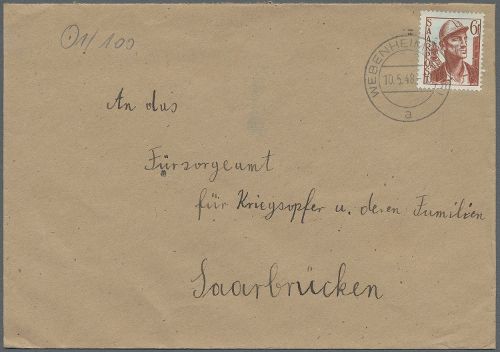 O1/100
6F
SAARPOST
WEBENHEIM
10.5.48
a
An das
Fürsorgeamt
für Kriegsopfer u. deren Familien
Saarbrücken